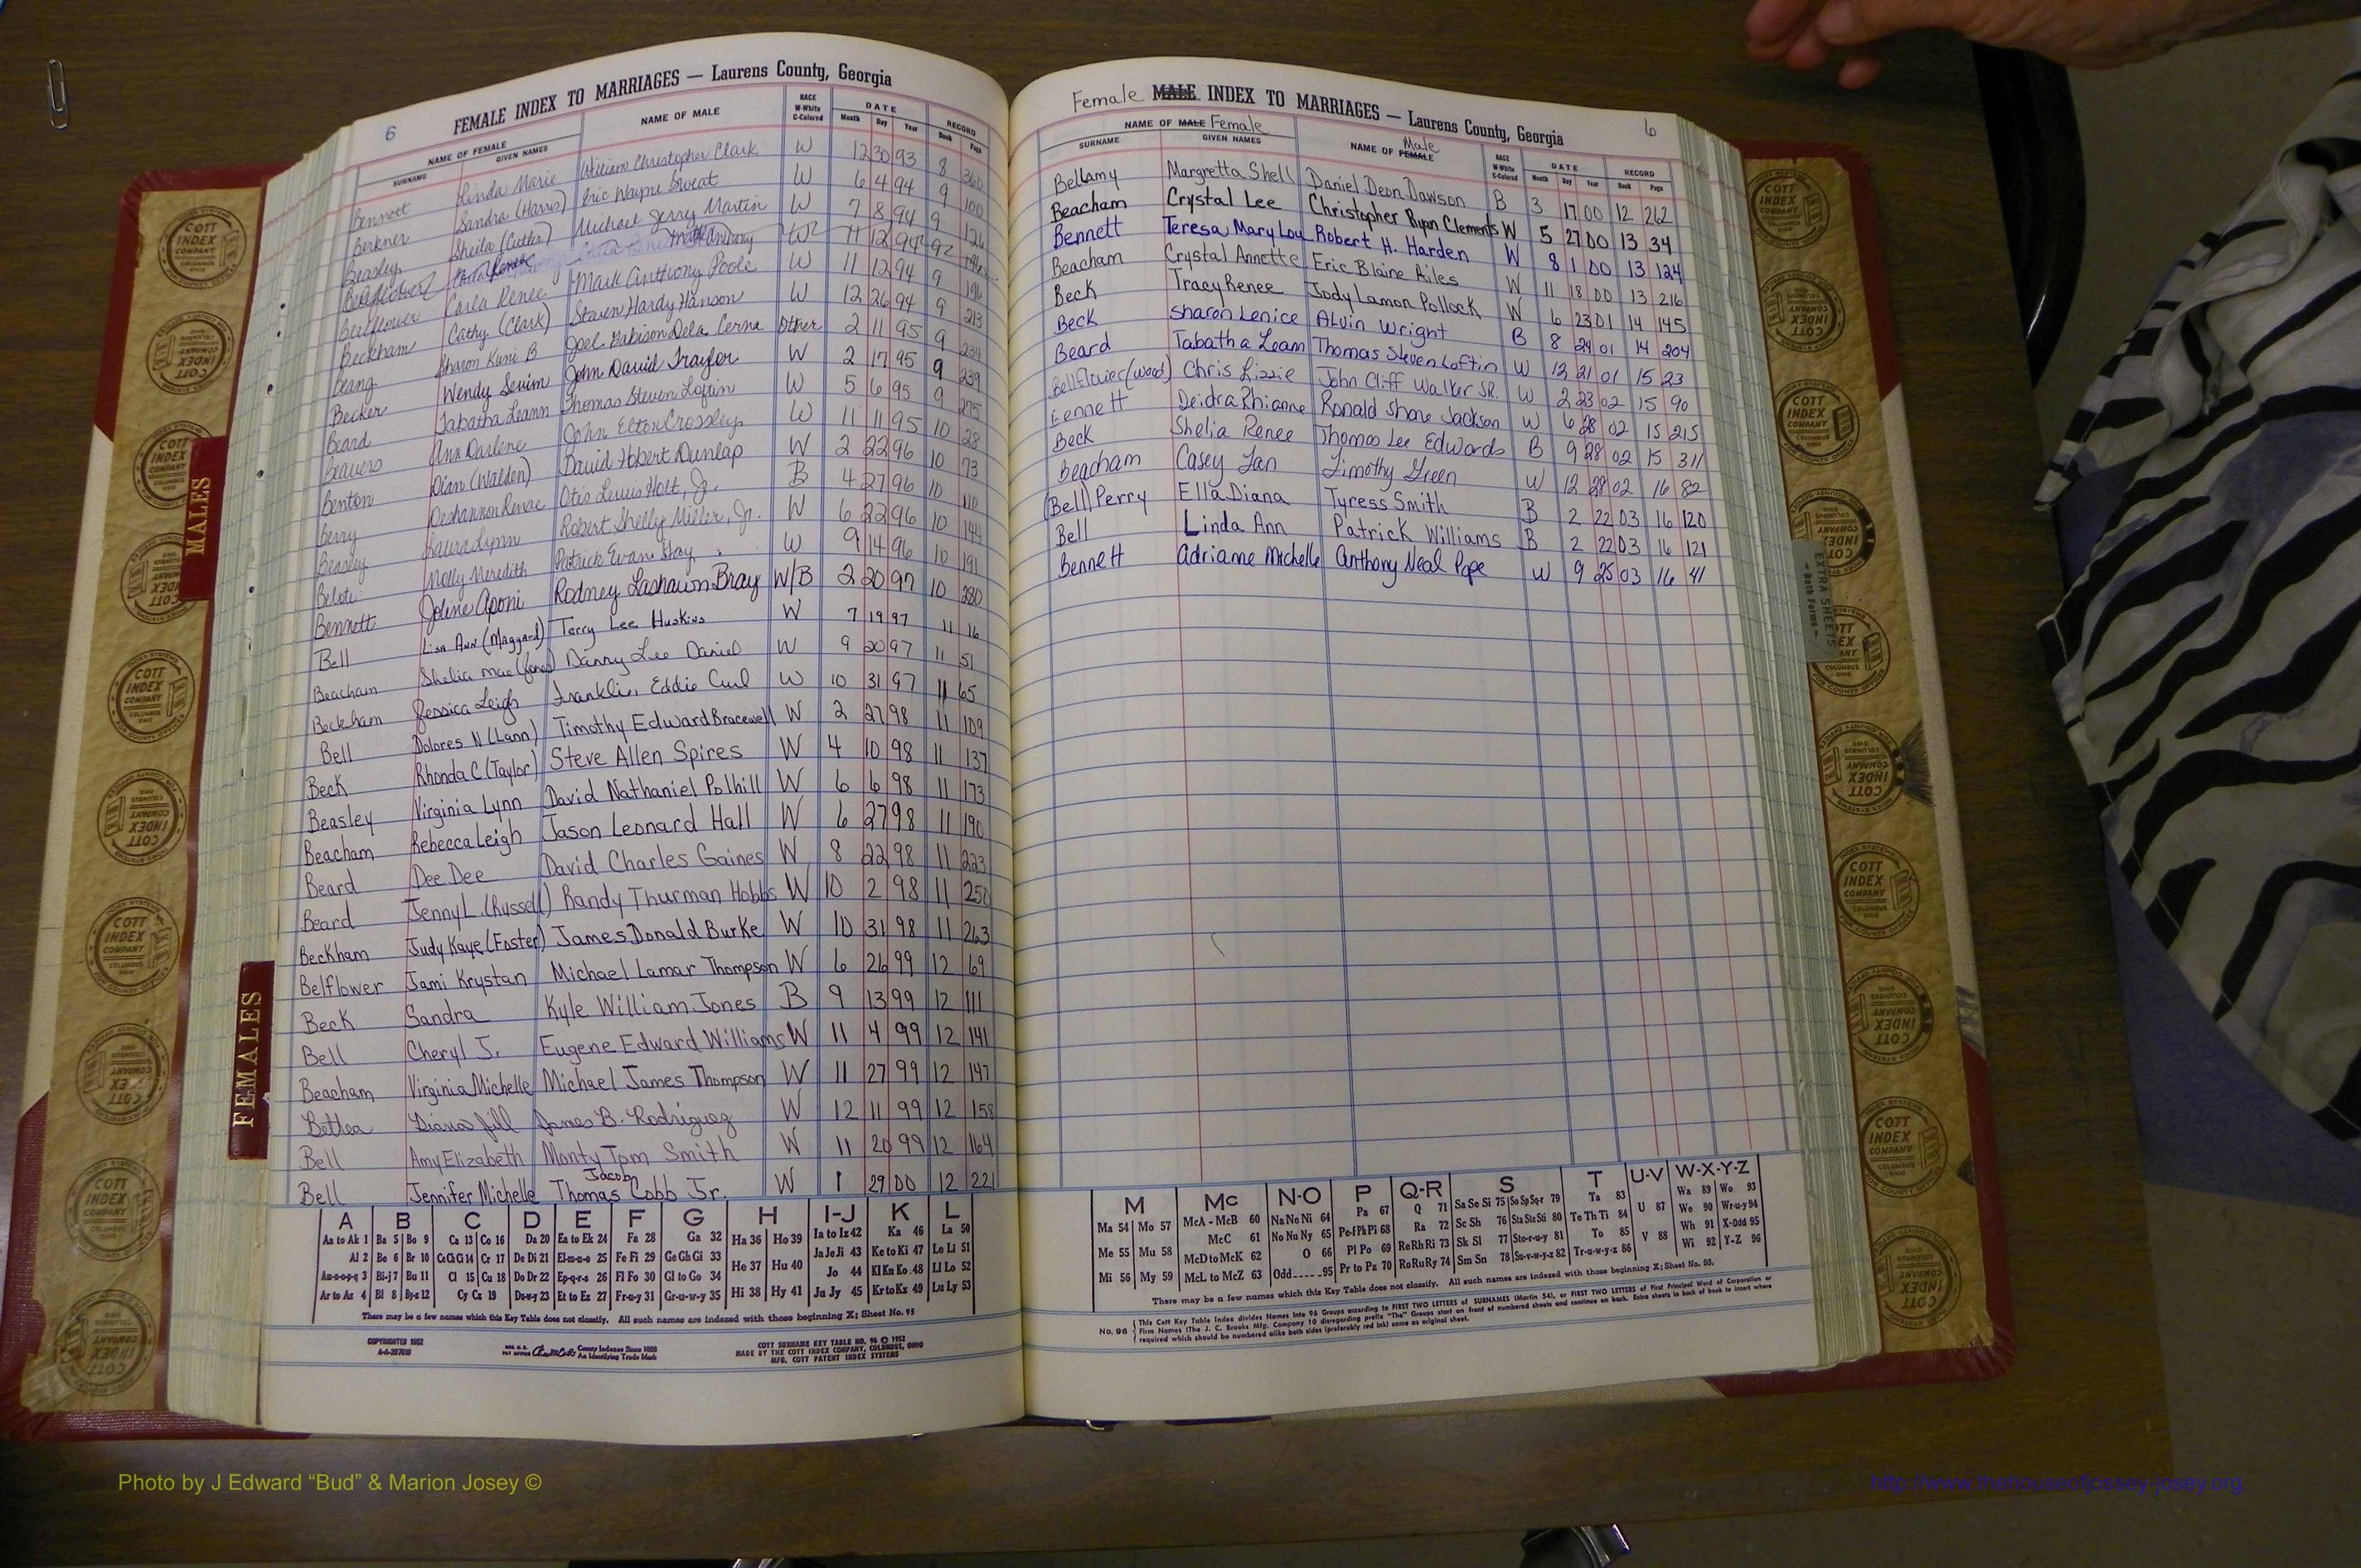 6 FEMALE INDEX TO MARRIAGES — Laurens County, Georgia
NAME OF FEMALE NAME OF MALE RACE W-White C-Colored DATE RECORD
SURNAME GIVEN NAMES Month Day Year Book Page
Bennett Linda Marie William Christopher Clark W 12 30 93 8 360
Berkner Sandra (Harris) Eric Wayne Sweat W 6 4 94 9 100
Beasley Sheila (Cutler) Michael Jerry Martin W 7 8 94 9
Bellflower Carla Renee Mark Anthony Poole W 11 12 94 9 196
Beckham Cathy (Clark) Steven Hardy Hanson W 12 26 94 9 213
Being Sharon Kuni B Joel Dela Cerna Other 2 11 95 9 234
Becker Wendy John David Traylor W 2 17 95 9 239
Beard Tabatha Leann Thomas Steven Loftin W 5 6 95 9 275
Beavers Ann Darlene John Elton Crossley W 11 11 95 10 28
Benton Dian (Walden) David Hobert Dunlap W 2 22 96 10 73
Berry Deshannon Renae Otis Lewis Holt, Jr. B 4 27 96 10 110
Beasley Laura Lynn Robert Shelly Miller, Jr. W 6 22 96 10 144
Belote Molly Meredith Patrick Evans Gay W 9 14 96 10 191
Bennett Joline Aponi Rodney Lashawn Bray W/B 2 20 97 10 280
Bell Lisa Ann (Maggard) Terry Lee Huskins W 7 19 97 11 16
Beacham Shelia Mae (Jones) Danny Lee Daniel W 9 20 97 11 51
Beckham Jessica Leigh Franklin Eddie Curl W 10 31 97 11 65
Bell Dolores N (Lann) Timothy Edward Bracewell W 2 27 98 11 109
Beck Rhonda C (Taylor) Steve Allen Spires W 4 10 98 11 137
Beasley Virginia Lynn David Nathaniel Polhill W 6 6 98 11 173
Beacham Rebecca Leigh Jason Leonard Hall W 6 27 98 11 190
Beard Dee Dee David Charles Gaines W 8 22 98 11 223
Beard Jenny L (Russell) Randy Thurman Hobbs W 10 2 98 11 250
Beckham Judy Kaye (Foster) James Donald Burke W 10 31 98 11 263
Belflower Jami Krystan Michael Lamar Thompson W 6 26 99 12 69
Beck Sandra Kyle William Jones B 9 13 99 12 111
Bell Cheryl J. Eugene Edward Williams W 11 4 99 12 141
Beacham Virginia Michelle Michael James Thompson W 11 27 99 12 147
Bethea Diana Jill James B. Rodriguez W 12 11 99 12 158
Bell Amy Elizabeth Monty Tom Smith W 11 20 99 12 164
Jacob
Bell Jennifer Michelle Thomas Cobb Jr. W 1 29 00 12 221
A B C D E F G H I-J K L
Aa to Ak 1 Ba 5 Bo 9 Ca 13 Co 16 Da 20 Ea to Ek 24 Fa 28 Ga 32 Ha 36 Ho 39 Ia to Iz 42 Ka 46 La 50
Al 2 Be 6 Br 10 Ce Ch Ci 14 Cr 17 De Di 21 El-m-n-o 25 Fe Fi 29 Ge Gh Gi 33 He 37 Hu 40 Ja Je Ji 43 Ke to Ki 47 Le Li 51
Am-n-o-p-q 3 Bi-j 7 Bu 11 Cl 15 Cu 18 Do Dr 22 Ep-q-r-s 26 Fl Fo 30 Gl to Go 34 Jo 44 Kl Kn Ko 48 Ll Lo 52
Ar to Az 4 Bl 8 By-z 12 Cy Cz 19 Du-w-y 23 Et to Ez 27 Fr-u-y 31 Gr-u-w-y 35 Hi 38 Hy 41 Ju Jy 45 Kr to Kz 49 Lu Ly 53
There may be a few names which this Key Table does not classify. All such names are indexed with those beginning X; Sheet No. 95
COPYRIGHTED 1952
County Indexes Since 1888
An Identifying Trade Mark
COTT SURNAME KEY TABLE NO. 96 © 1952
MADE BY THE COTT INDEX COMPANY, COLUMBUS, OHIO
MFG. COTT PATENT INDEX SYSTEMS
Female MALE INDEX TO MARRIAGES — Laurens County, Georgia 6
NAME OF MALE Female NAME OF FEMALE Male RACE W-White C-Colored DATE RECORD
SURNAME GIVEN NAMES Month Day Year Book Page
Bellamy Margretta Shell Daniel Deon Dawson B 3 17 00 12 262
Beacham Crystal Lee Christopher Ryan Clements W 5 27 00 13 34
Bennett Teresa Mary Lou Robert H. Harden W 8 1 00 13 124
Beacham Crystal Annette Eric Blaine Ailes W 11 18 00 13 216
Beck Tracy Renee Jody Lamon Pollock W 6 23 01 14 145
Beck Sharon Lenice Alvin Wright B 8 24 01 14 204
Beard Tabatha Leann Thomas Steven Loftin W 12 21 01 15 23
Bellflower (Wood) Chris Lizzie John Cliff Walker SR. W 2 23 02 15 90
Bennett Deidra Rhianne Ronald Shane Jackson W 6 28 02 15 215
Beck Shelia Renee Thomas Lee Edwards B 9 28 02 15 311
Beacham Casey Jan Timothy Green W 12 28 02 16 82
(Bell) Perry Ella Diana Tyress Smith B 2 22 03 16 120
Bell Linda Ann Patrick Williams B 2 22 03 16 121
Bennett Adrianne Michelle Anthony Neal Pope W 9 25 03 16 41
M Mc N-O P Q-R S T U-V W-X-Y-Z
Ma 54 Mo 57 McA - McB 60 Na Ne Ni 64 Pa 67 Q 71 Sa Se Si 75 So Sp Sq-r 79 Ta 83 U 87 Wa 89 Wo 93
Me 55 Mu 58 McC 61 No Nu Ny 65 Pe-f Ph Pi 68 Ra 72 Sc Sh 76 Sta Ste Sti 80 Te Th Ti 84 We 90 Wr-u-y 94
McD to McK 62 O 66 Pl Po 69 Re Rh Ri 73 Sk Sl 77 Sto-r-u-y 81 To 85 V 88 Wh 91 X-Odd 95
Mi 56 My 59 McL to McZ 63 Odd 95 Pr to Pz 70 Ro Ru Ry 74 Sm Sn 78 Su-v-w-y-z 82 Tr-u-w-y-z 86 Wi 92 Y-Z 96
There may be a few names which this Key Table does not classify. All such names are indexed with those beginning X; Sheet No. 95.
No. 96 This Cott Key Table Index divides Names into 96 Groups according to FIRST TWO LETTERS of SURNAMES (Martin 54), or FIRST TWO LETTERS of First Principal Word of Corporation or
Firm Names (The J. C. Brooks Mfg. Company 10 disregarding prefix "The") Groups start on front of numbered sheets and continue on back. Extra sheets in back of book to insert where
required which should be numbered alike both sides (preferably red ink) same as original sheet.
MALES
FEMALES
EXTRA SHEETS
COTT INDEX COMPANY COLUMBUS OHIO
Photo by J Edward “Bud” & Marion Josey ©
http://www.thehouseofjossey-josey.org